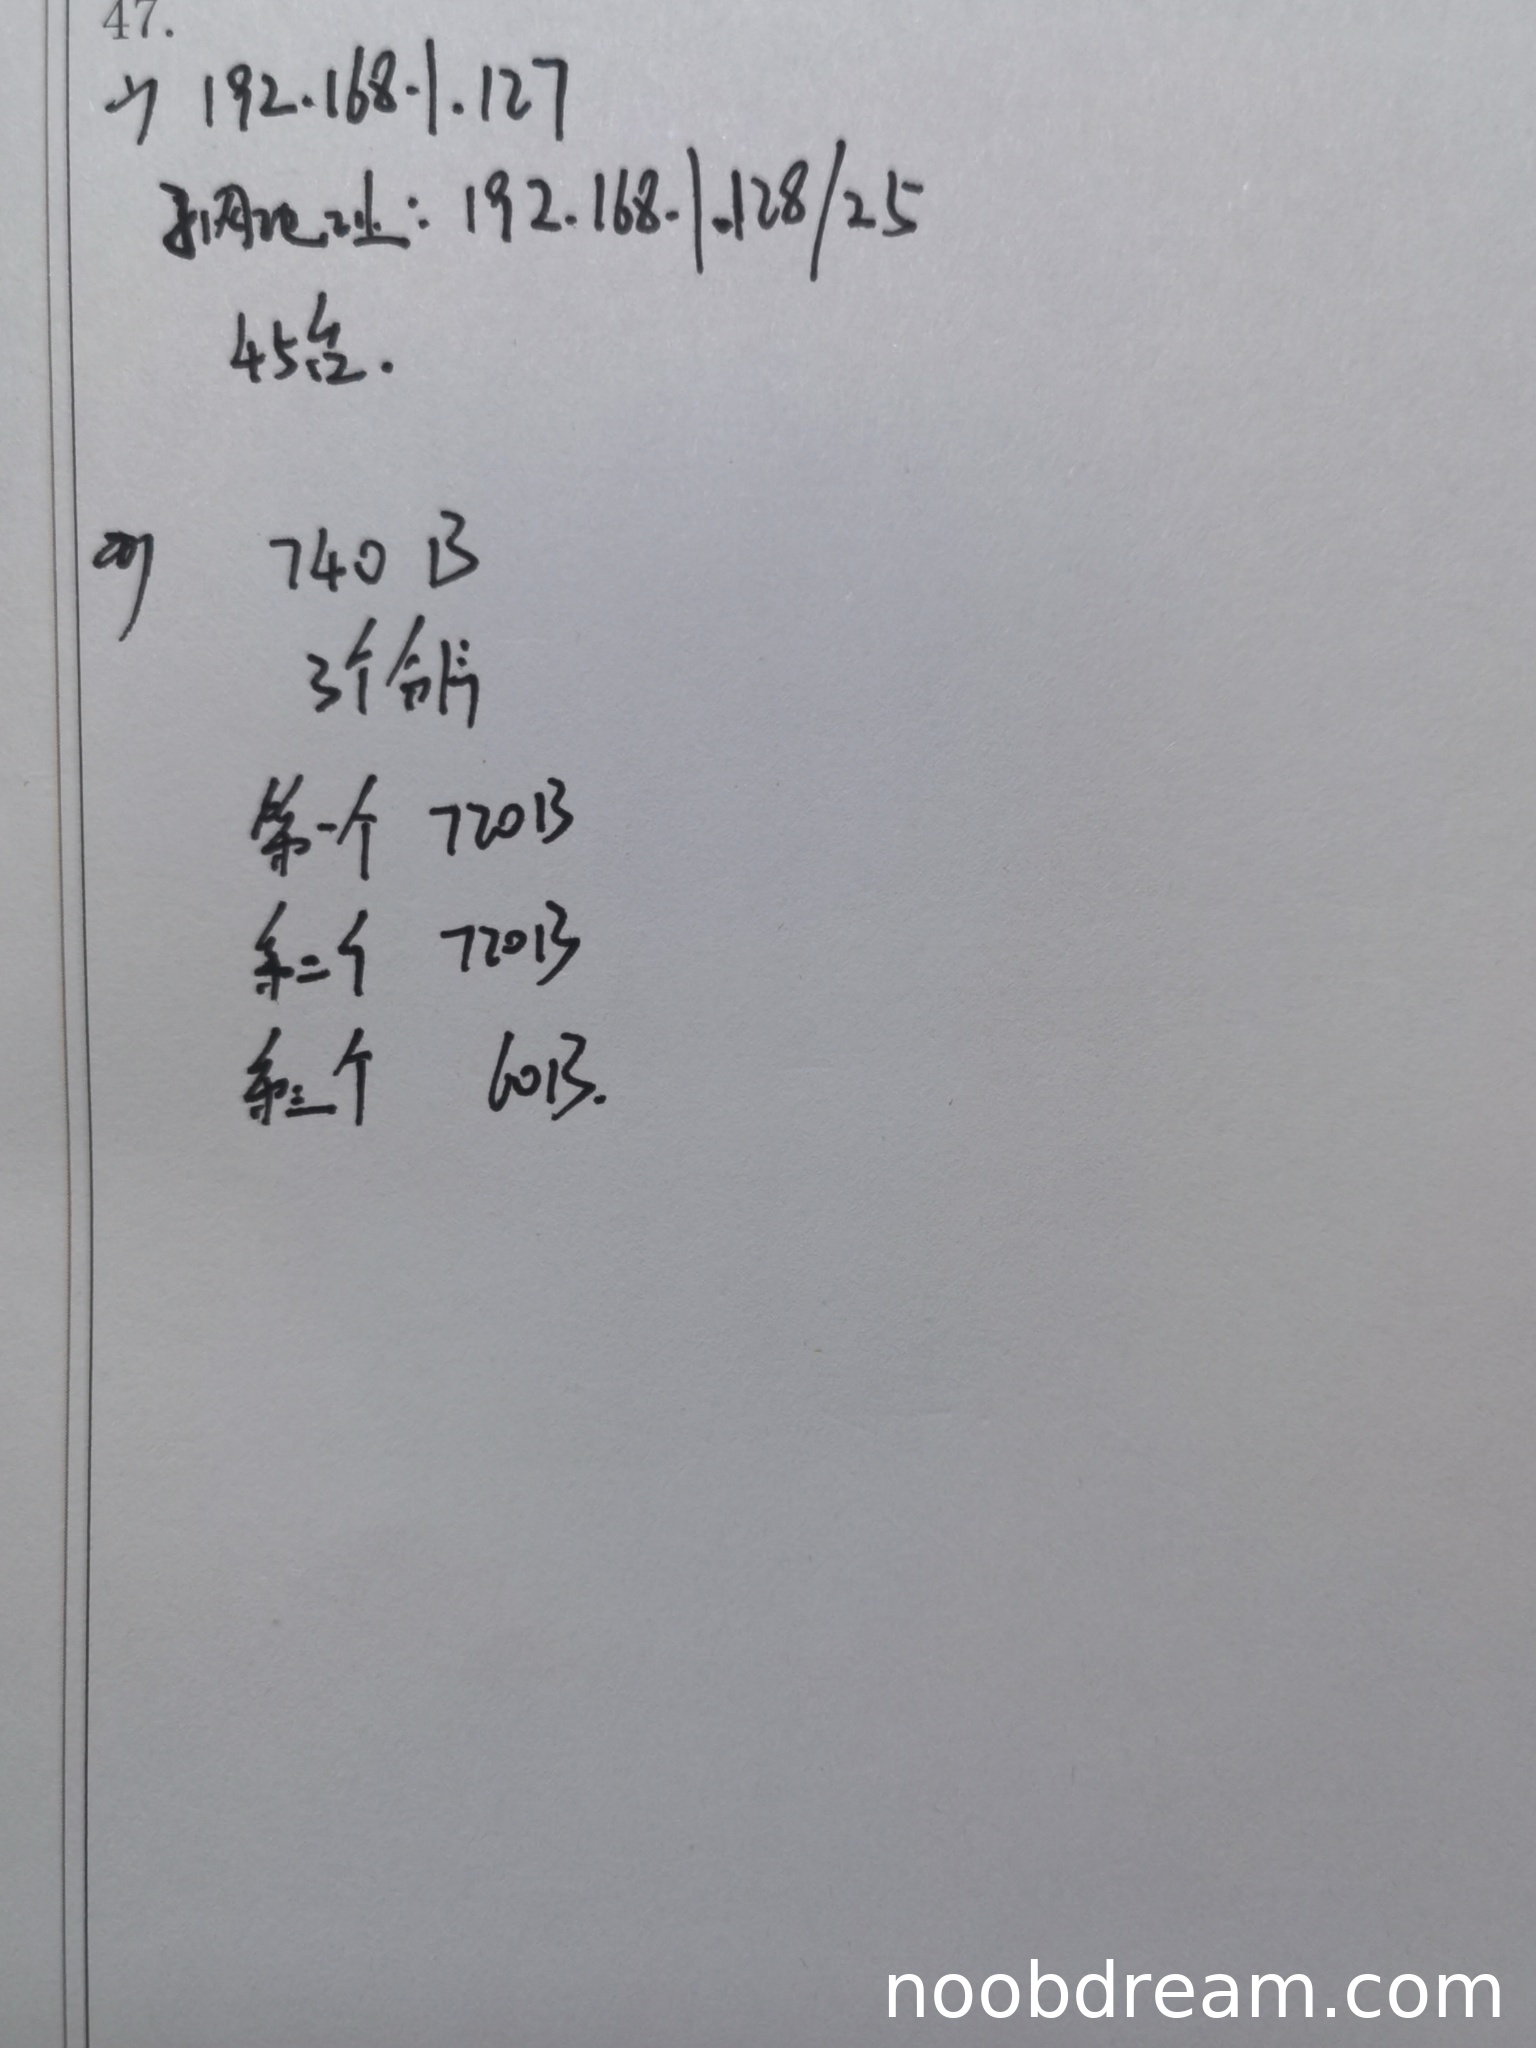 47.
(1) 192.168.1.127
子网地址: 192.168.1.128/25
45台.
(2) 740 B
3个分片
第一个 720B
第二个 720B
第三个 60B.
noobdream.com